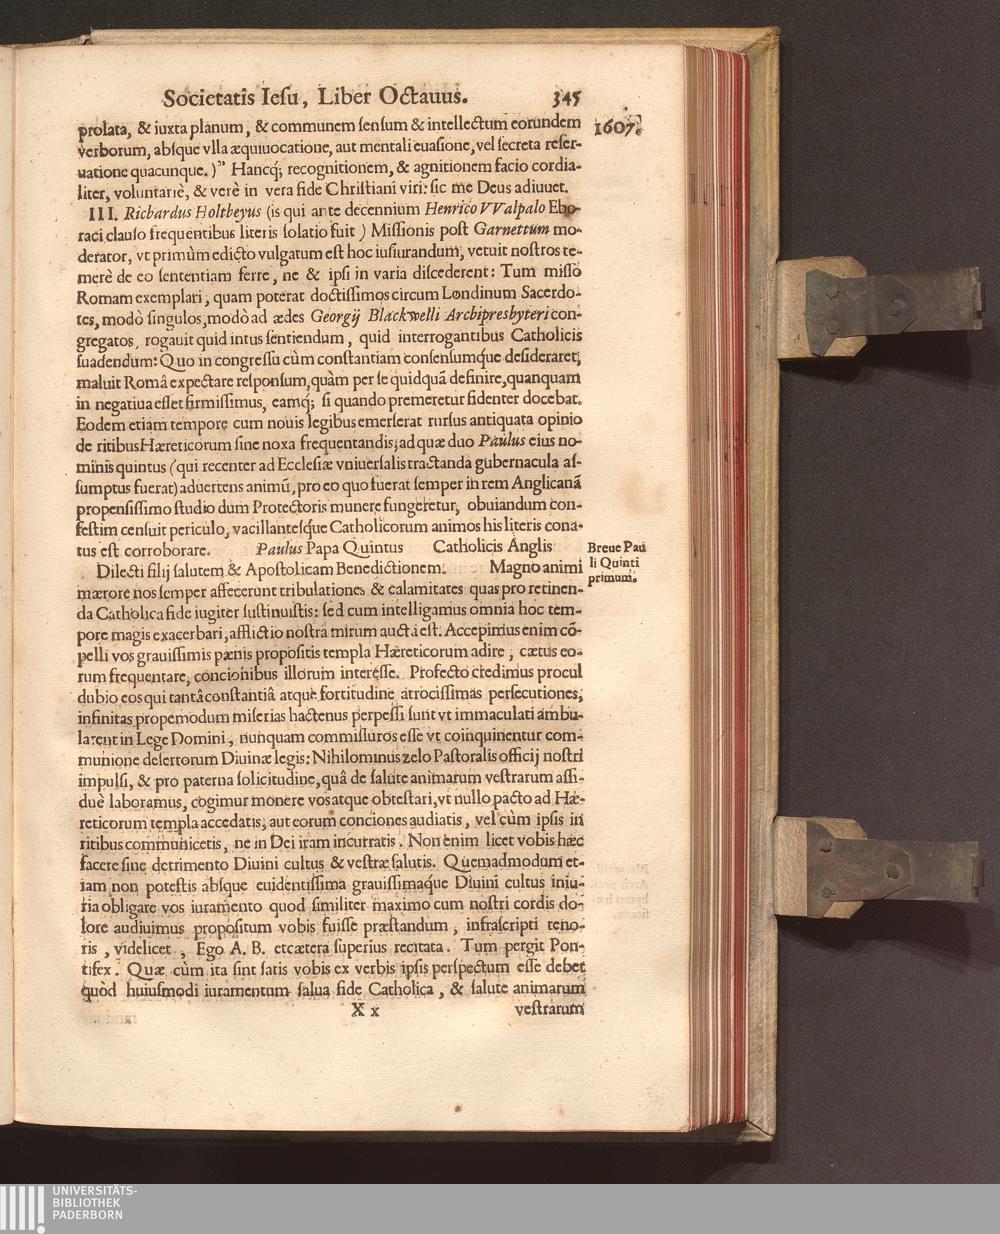 Societatis Iesu, Liber Octauus. 345
1607.
prolata, & iuxta planum, & communem sensum & intellectum eorundem
verborum, absque vlla æquiuocatione, aut mentali euasione, vel secreta reser-
uatione quacunque.)" Hancq; recognitionem, & agnitionem facio cordia-
liter, voluntariè, & verè in vera fide Christiani viri: sic me Deus adiuuet.
III. Richardus Holtbeyus (is qui ante decennium Henrico VValpalo Ebo-
raci clauso frequentibus literis solatio fuit) Missionis post Garnettum mo-
derator, vt primùm edicto vulgatum est hoc iusiurandum, vetuit nostros te-
merè de eo sententiam ferre, ne & ipsi in varia discederent: Tum misso
Romam exemplari, quam poterat doctissimos circum Londinum Sacerdo-
tes, modò singulos, modò ad ædes Georgij Blackwelli Archipresbyteri con-
gregatos, rogauit quid intus sentiendum, quid interrogantibus Catholicis
suadendum: Quo in congressu cùm constantiam consensumq́ue desideraret,
maluit Româ expectare responsum, quàm per se quidquã definire, quanquam
in negatiua esset firmissimus, eamq; si quando premeretur fidenter docebat.
Eodem etiam tempore cum nouis legibus emerserat rursus antiquata opinio
de ritibus Hæreticorum sine noxa frequentandis; ad quæ duo Paulus eius no-
minis quintus (qui recenter ad Ecclesiæ vniuersalis tractanda gubernacula as-
sumptus fuerat) aduertens animũ, pro eo quo fuerat semper in rem Anglicanã
propensissimo studio dum Protectoris munere fungeretur, obuiandum con-
festim censuit periculo, vacillantesq́ue Catholicorum animos his literis cona-
tus est corroborare. Paulus Papa Quintus Catholicis Anglis
Breue Pau
li Quinti
primum.
Dilecti filij salutem & Apostolicam Benedictionem. Magno animi
mærore nos semper affecerunt tribulationes & calamitates quas pro retinen-
da Catholica fide iugiter sustinuistis: sed cum intelligamus omnia hoc tem-
pore magis exacerbari, afflictio nostra mirum aucta est. Accepimus enim cõ-
pelli vos grauissimis pænis propositis templa Hæreticorum adire, cætus eo-
rum frequentare, concionibus illorum interesse. Profecto credimus procul
dubio eos qui tantâ constantiâ atque fortitudine atrocissimas persecutiones,
infinitas propemodum miserias hactenus perpessi sunt vt immaculati ambu-
larent in Lege Domini, nunquam commissuros esse vt coinquinentur com-
munione desertorum Diuinæ legis: Nihilominus zelo Pastoralis officij nostri
impulsi, & pro paterna solicitudine, quâ de salute animarum vestrarum assi-
duè laboramus, cogimur monere vos atque obtestari, vt nullo pacto ad Hæ-
reticorum templa accedatis, aut eorum conciones audiatis, vel cùm ipsis in
ritibus communicetis, ne in Dei iram incurratis. Non enim licet vobis hæc
facere sine detrimento Diuini cultus & vestræ salutis. Quemadmodum et-
iam non potestis absque euidentissima grauissimaq́ue Diuini cultus iniu-
ria obligare vos iuramento quod similiter maximo cum nostri cordis do-
lore audiuimus propositum vobis fuisse præstandum, infrascripti teno-
ris, videlicet, Ego A. B. etcætera superius recitata. Tum pergit Pon-
tifex. Quæ cùm ita sint satis vobis ex verbis ipsis perspectum esse debet
quòd huiusmodi iuramentum salua fide Catholica, & salute animarum
X x vestrarum
UNIVERSITÄTS-
BIBLIOTHEK
PADERBORN